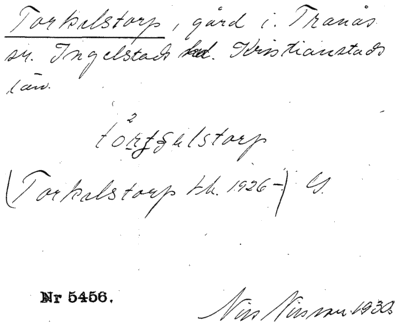 Torkelstorp, gård i. Tranås
sn. Ingelstads hd. Kristianstads
län.
(Torkelstorp Lk. 1926-)
Nr 5456.
Nils Nilsson 1930